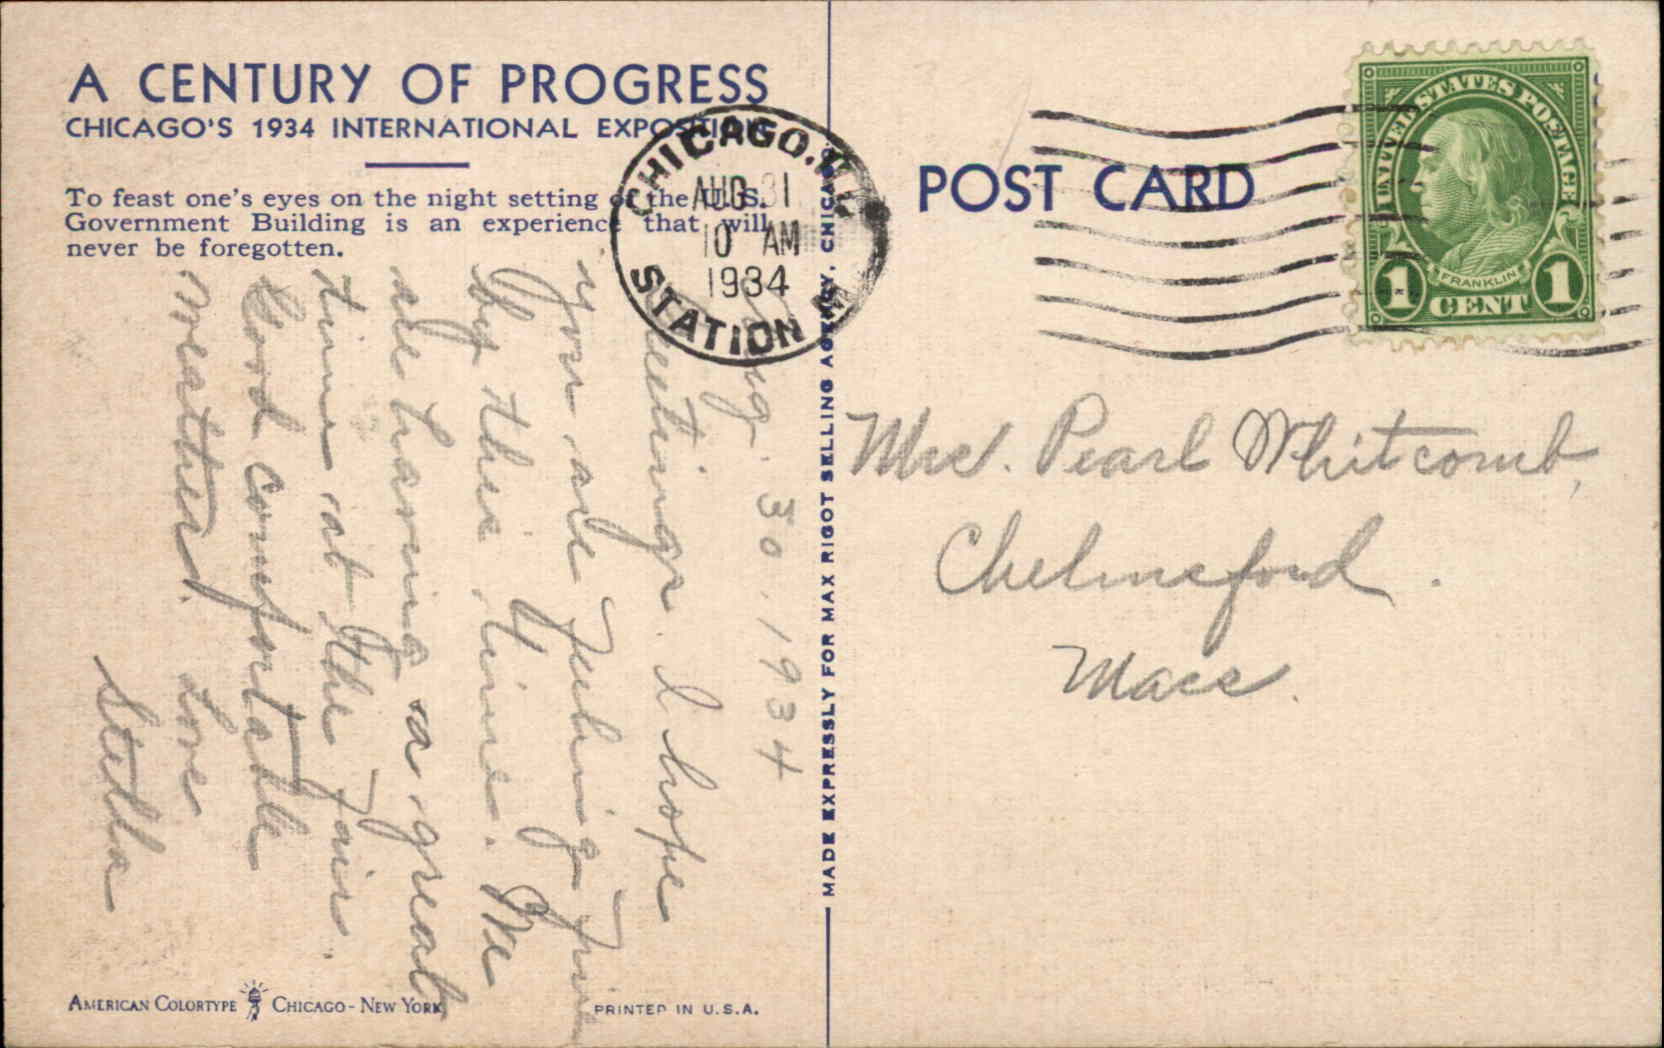 A CENTURY OF PROGRESS
CHICAGO'S 1934 INTERNATIONAL EXPOSITION
To feast one's eyes on the night setting of the U. S.
Government Building is an experience that will
never be foregotten.
CHICAGO, ILL.
AUG 31
10 AM
1934
STATION
Aug. 30, 1934
Greetings. I hope
you are feeling fine
by this time. We
are having a great
time at the fair.
Good comfortable
weather. Love
Stella
AMERICAN COLORTYPE CHICAGO - NEW YORK
PRINTED IN U.S.A.
MADE EXPRESSLY FOR MAX RIGOT SELLING AGENCY, CHICAGO
POST CARD
UNITED STATES POSTAGE
FRANKLIN
1 CENT 1
Mrs. Pearl Whitcomb,
Chelmsford.
Mass.